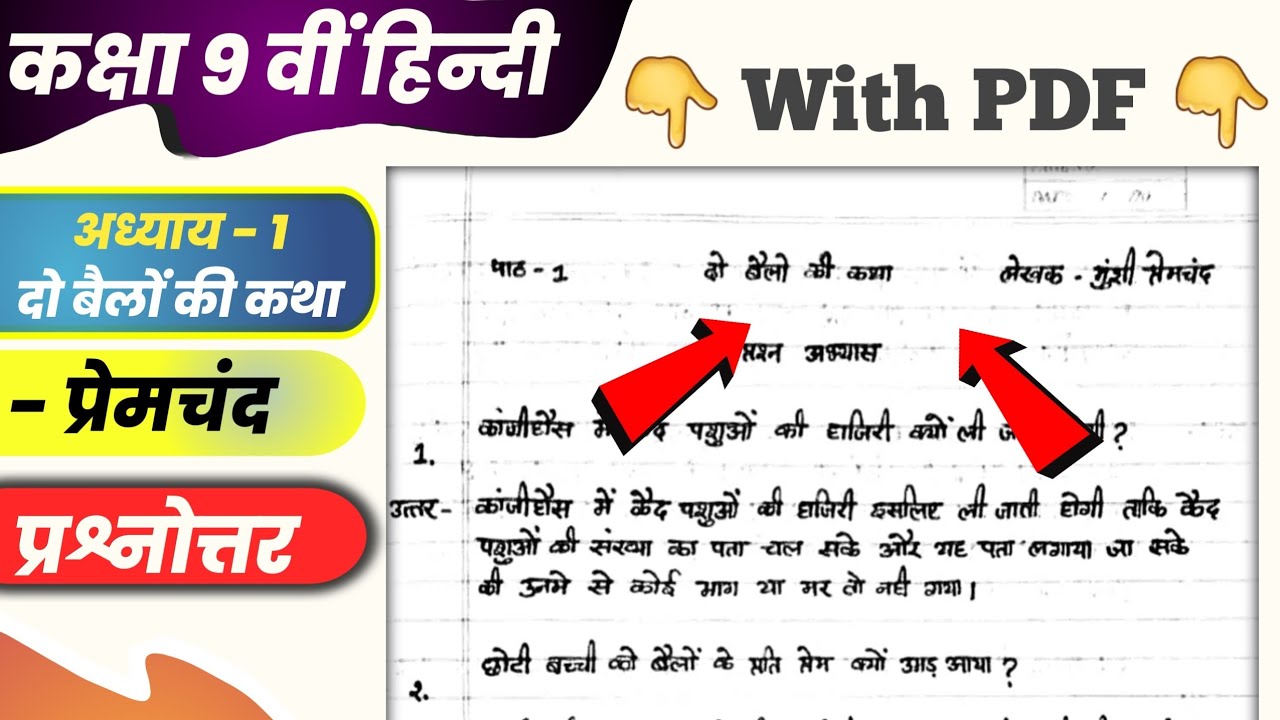 कक्षा 9 वीं हिन्दी
With PDF
अध्याय - 1
दो बैलों की कथा
- प्रेमचंद
प्रश्नोत्तर
पाठ - 1 दो बैलो की कथा लेखक - मुंशी प्रेमचंद
प्रश्न अभ्यास
1. कांजीहौस पशुओं की हाजिरी क्यों ली ?
उत्तर - कांजीहौस में कैद पशुओं की हाजिरी इसलिए ली जाती होगी ताकि कैद
पशुओं की संख्या का पता चल सके और यह पता लगाया जा सके
की उनमे से कोई भाग या मर तो नही गया।
2. छोटी बच्ची को बैलों के प्रति प्रेम क्यों उमड़ आया ?